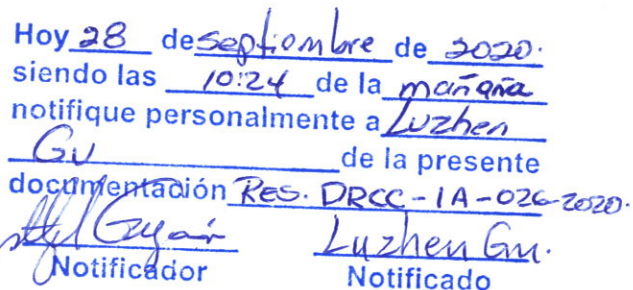 Hoy 28 de septiembre de 2020.
siendo las 10:24 de la mañana
notifique personalmente a Luzhen
Gu de la presente
documentación Res. DRCC-IA-026-2020.
Luzhen Gu.
Notificador Notificado